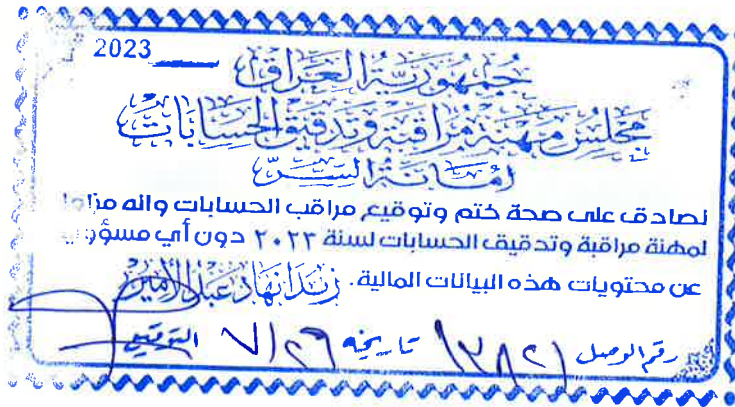 2023
جمهورية العراق
مجلس مهنة مراقبة وتدقيق الحسابات
امانة السر
نصادق على صحة ختم وتوقيع مراقب الحسابات وانه
لمهنة مراقبة وتدقيق الحسابات لسنة ٢٠٢٣ دون أي
عن محتويات هذه البيانات المالية. نهاد عبد الأمير
رقم الوصل ١٣٨٢١ تاريخه ٧/٢٦ التوقيع